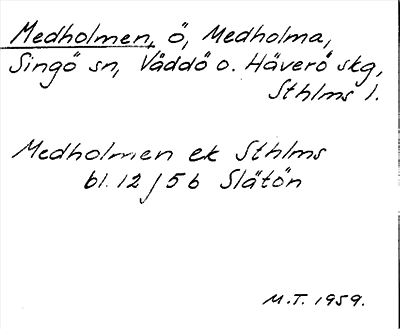 Medholmen, ö, Medholma,
Singö sn, Väddö o. Häverö skg,
Sthlms l.
Medholmen ek Sthlms
bl. 12 / 5 b Slätön
M.T. 1959.